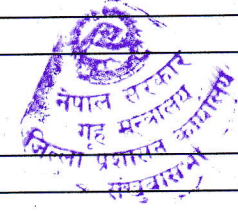 नेपाल सरकार
गृह मन्त्रालय
जिल्ला प्रशासन कार्यालय
संखुवासभा